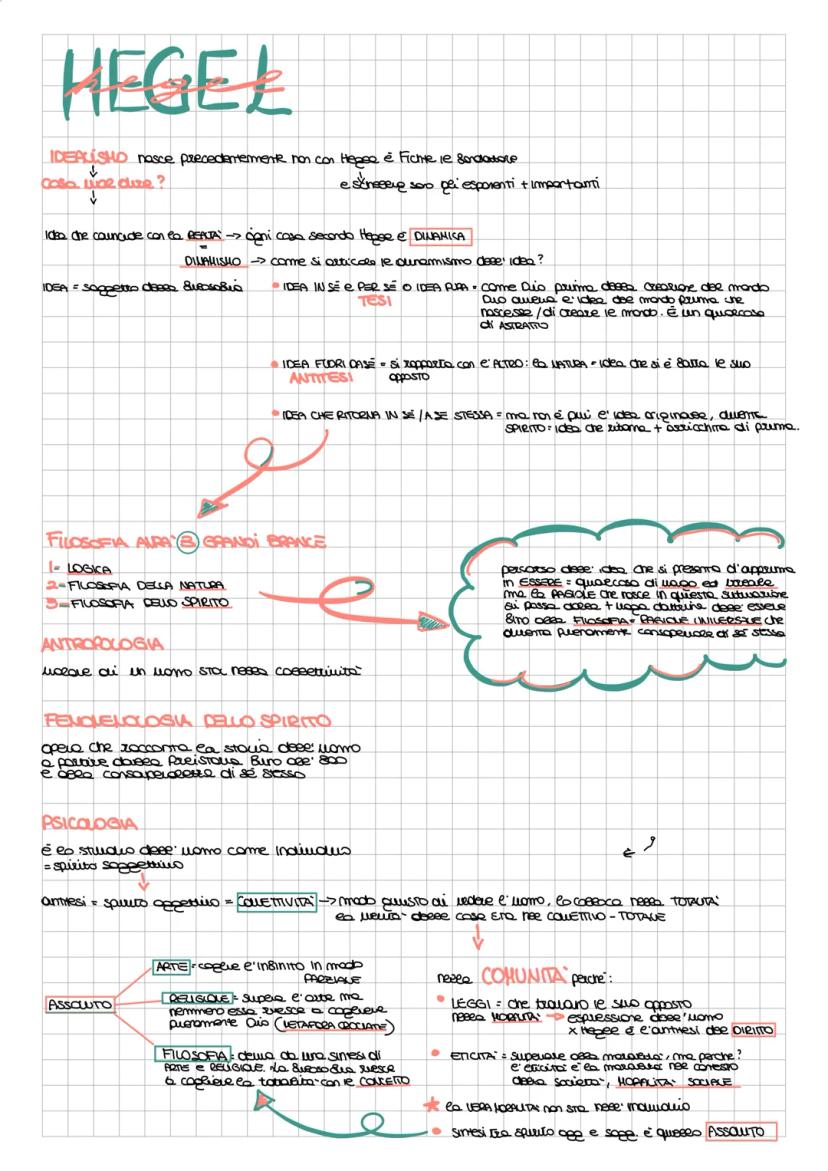 HEGEL
hegel
IDEALISMO nasce precedentemente non con Hegel è Fichte il fondatore
cosa vuol dire?
e schelling sono gli esponenti + importanti
Idea che coincide con la REALTÀ → ogni cosa secondo Hegel è DINAMICA
=
DINAMISMO → come si articola il dinamismo dell'idea?
IDEA = soggetto della filosofia
• IDEA IN SÉ e PER SÉ O IDEA PURA = come Dio prima della creazione del mondo
TESI
Dio aveva l'idea del mondo prima che
nascesse / di creare il mondo. È un qualcosa
di ASTRATTO
• IDEA FUORI DA SÉ = si rapporta con l'ALTRO: la NATURA = idea che si è fatta il suo
ANTITESI
opposto
• IDEA CHE RITORNA IN SÉ / A SE STESSA = ma non è più l'idea originale, diventa
SPIRITO = idea che ritorna + arricchita di prima.
FILOSOFIA AVRÀ 3 GRANDI BRANCE
1- LOGICA
2- FILOSOFIA DELLA NATURA
3- FILOSOFIA DELLO SPIRITO
percorso dell'idea che si presenta d'apprima
in ESSERE = qualcosa di vago ed
ma la RAGIONE che nasce in questa situazione
si passa dalla + vaga dottrina dell'essere
fino alla FILOSOFIA = RAGIONE UNIVERSALE che
diventa pienamente consapevole di sé stessa
ANTROPOLOGIA
valore di un uomo sta nella collettività
FENOMENOLOGIA DELLO SPIRITO
opera che racconta la storia dell'uomo
a partire dalla Preistoria fino all'800
e alla consapevolezza di sé stesso
PSICOLOGIA
è lo studio dell'uomo come individuo
= spirito soggettivo
antitesi = spirito oggettivo = COLLETTIVITÀ → modo giusto di vedere l'uomo, lo colloca nella TOTALITÀ
la verità delle cose STA NEL COLLETTIVO - TOTALE
ASSOLUTO
ARTE = coglie l'infinito in modo
PARZIALE
RELIGIONE = supera l'arte ma
nemmeno essa riesce a cogliere
pienamente Dio (METAFORA CROCIATE)
FILOSOFIA = deriva da una sintesi di
ARTE e RELIGIONE. La filosofia riesce
a cogliere la totalità con il CONCETTO
nella COMUNITÀ perché:
• LEGGI = che trovano il suo opposto
nella MORALITÀ → espressione dell'uomo
x Hegel è l'antitesi del DIRITTO
• ETICITÀ = superare alla moralità, ma perché?
l'eticità è la moralità nel contesto
della società, MORALITÀ SOCIALE
★ la VERA MORALITÀ non sta nell'individuo
• SINTESI tra spirito ogg e sogg. è quello ASSOLUTO